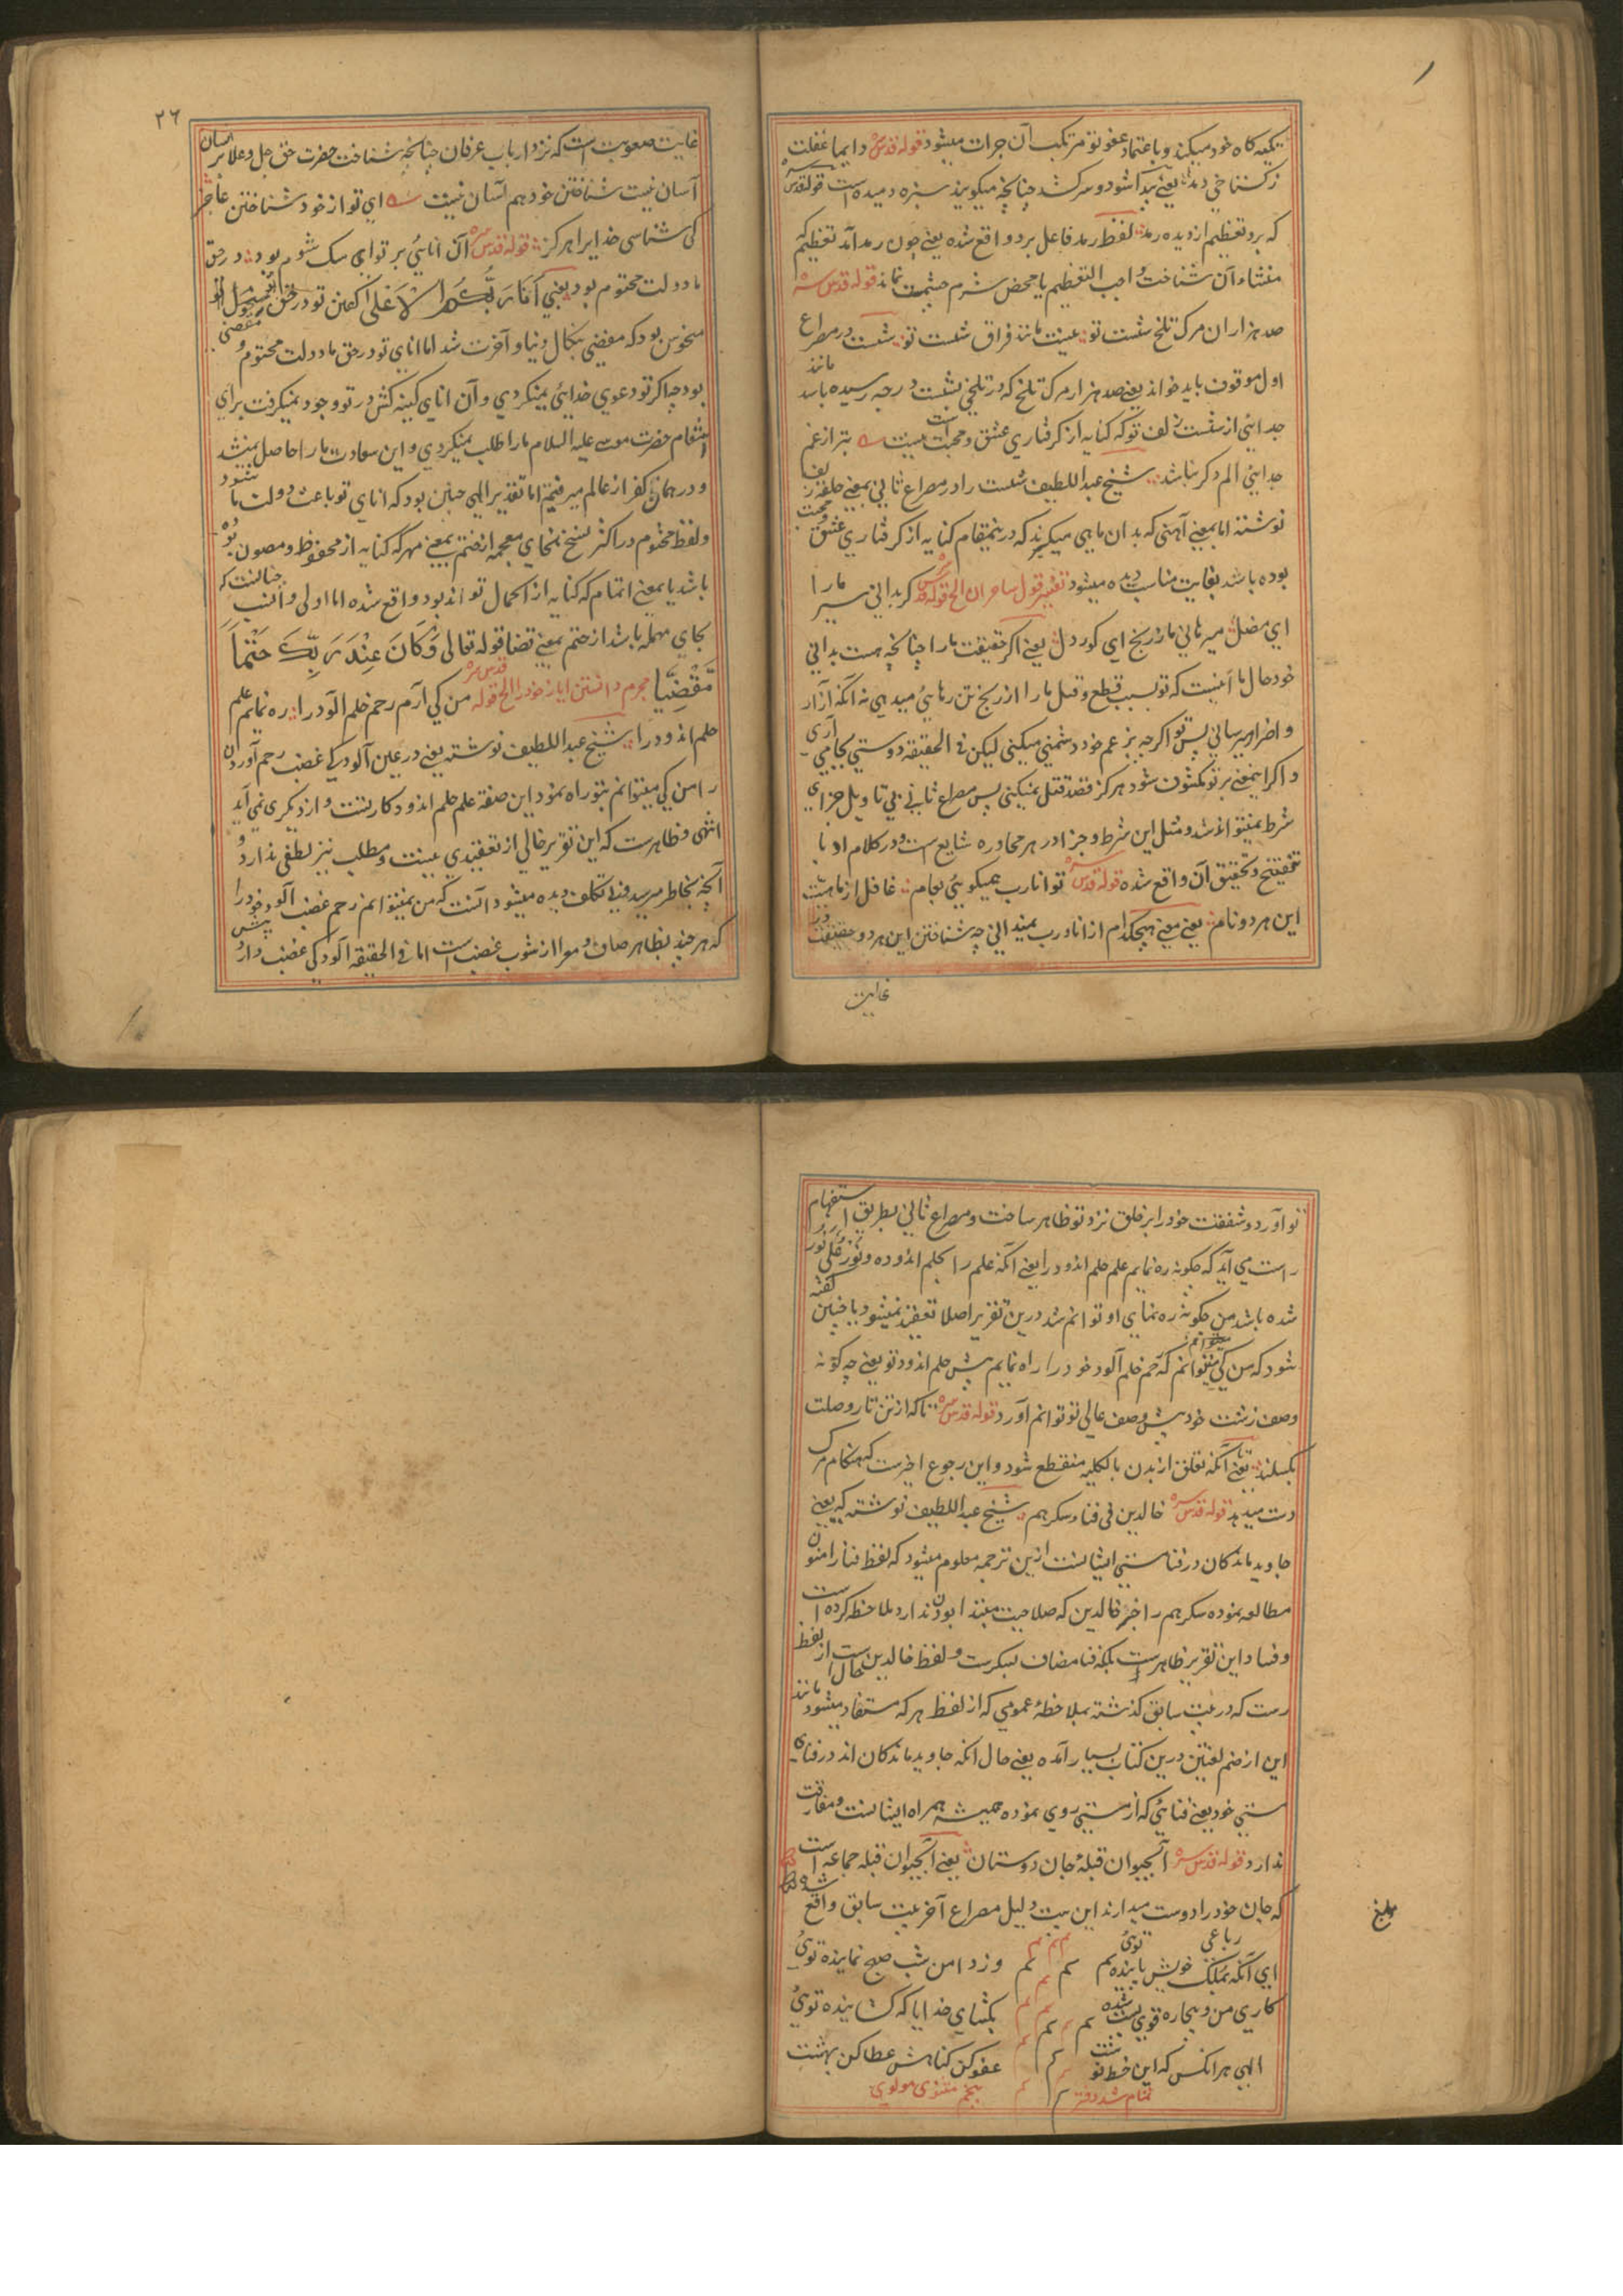 تکیه گاه خود میکند و باعتماد عفو تو مرتکب آن جرات میشود قوله قدس سره دایما غفلت
ز گستاخی دمد یعنی پیدا شود و سر کشد چنانچه میگویند سبزه دمیده است قوله قدس سره
که برد تعظیم از دیده رمد لفظ رمد فاعل برد واقع شده یعنی چون رمد آمد تعظیم که
منشاء آن شناخت واجب التعظیم یا محض شرم چشمست نماند قوله قدس سره
صد هزاران مرگ تلخ شست تو نیست مانند فراق شست تو شست در مصراع
اول موقوف باید خواند یعنی صد هزار مرگ تلخ که در تلخی بشست درجه رسیده باشد مانند
جدائی از شست زلف تو که کنایه از گرفتاری عشق و محبت است نیست بتر از غم
جدایی الم دگر نباشد شیخ عبد اللطیف شست را در مصراع ثانی بمعنی حلقه زلف
نوشته اما بمعنی آهنی که بدان ماهی میگیرند که درینمقام کنایه از گرفتاری عشق و محبت
بوده باشد بغایت مناسب دیده میشود تفسیر قول ساحران الخ قوله قدس سره گر بدانی سر ما را
ای مضل میرهانی مان ز رنج ای کور دل یعنی اگر حقیقت ما را چنانچه هست بدانی
خود حال ما اینست که تو بسبب قطع و قتل ما را از رنج تن رهایی میدهی نه آنکه آزار
و اضرار میرسانی پس تو اگرچه بزعم خود دشمنی میکنی لیکن فی الحقیقه دوستی بجا می آری
و اگر اینمعنی بر تو مکشوف شود هرگز قصد قتل نمیکنی پس مصراع ثانی بی تاویل جزای
شرط نمیتواند شد و مثل این شرط و جزا در هر محاوره شایع است و در کلام ادبا
تنقیح و تحقیق آن واقع شده قوله قدس سره تو انا رب همیگویی بعام غافل از ماهیت
این هر دو نام یعنی معنی هیچکدام از انا و رب نمیدانی چه شناختن این هر دو حقیقت در
غایت
۲۶
غایت صعوبت است که نزد ارباب عرفان چنانچه شناخت حضرت حق جل و علا بر انسان
آسان نیست شناختن خود هم آسان نیست ای تو از خود شناختن عاجز
کی شناسی خدای را هرگز قوله قدس سره آن انایی بر تو ای سک شوم بود در حق
ما دولت محتوم بود یعنی أنا ربکم الاعلی گفتن تو در حق
منحوس بود که مفضی بنکال دنیا و آخرت شد اما انای تو در حق ما دولت محتوم و مقضی
بود چه اگر تو دعوی خدایی نمیکردی و آن انای کینه کش در تو وجود نمیگرفت برای
انتقام حضرت موسی علیه السلام ما را طلب نمیکردی و این سعادت ما را حاصل نمیشد
و در همان کفر از عالم میرفتیم اما تقدیر الهی چنین بود که انای تو باعث دولت ما شود
و لفظ مختوم در اکثر نسخ بخای معجمه از ختم بمعنی مهر که کنایه از محفوظ و مصون بود
باشد یا بمعنی اتمام که کنایه از اکمال تواند بود واقع شده اما اولی و انسب چنانست که
بحای مهمله باشد از حتم بمعنی قضا قوله تعالی و کان عند ربک حتما
مقضیا مجرم دانستن ایاز خود را الخ قوله قدس سره من کی آرم رحم خلم آلود را ره نمایم علم
حلم اندود را شیخ عبد اللطیف نوشته یعنی در عین آلودگی غضب رحم آوردن
را من کی میتوانم بتو راه نمود این صفة علم حلم اندود کار تست و از دیگری نمی آید
انتهی و ظاهرست که این تقریر خالی از تعقیدی نیست و مطلب نیز لطفی ندارد و
آنچه بخاطر میرسد و بی تکلف دیده میشود آنست که من نمیتوانم رحم غضب آلود خود را
که هر چند بظاهر صاف و معرا از شوب غضب است اما فی الحقیقه آلودگی غضب دارد پیش
تو آورد و شفقت خود را بر خلق نزد تو ظاهر ساخت و مصراع ثانی بطریق استفهام
راست می آید که چگونه ره نمایم علم حلم اندود را یعنی آنکه علم را بحلم اندوده و نور علی نور
شده باشد من چگونه ره نمای او توانم شد درین تقریر اصلا تعقید نمیشود یا چنین گفته
شود که من کی میتوانم که رحم خلم آلود خود را راه نمایم پیش حلم اندود تو یعنی چه گونه
وصف زشت خود پیش وصف عالی تو توانم آورد قوله قدس سره تا که از تن تار وصلت
بگسلند یعنی تا آنکه تعلق از بدن بالکلیه منقطع شود و این رجوع اخیرست که هنگام مرگ
دست میدهد قوله قدس سره خالدین فی فنا و سکرهم شیخ عبد اللطیف نوشته که یعنی
جاوید ماندگان در فنا مستی ایشانست ازین ترجمه معلوم میشود که لفظ فنا را منون
مطالعه نموده سکرهم را خبر خالدین که صلاحیت مبتدا بودن ندارد ملاحظه کرده است
و فساد این تقریر ظاهر است بلکه فنا مضاف بسکرست و لفظ خالدین حال است از لفظ
رست که در بیت سابق گذشته بملاحظهٔ عمومی که از لفظ هر که مستفاد میشود مانند
این از ضم لغتین درین کتاب بسیار آمده یعنی حال آنکه جاوید ماندگان اند در فنای
مستی خود یعنی فنایی که از مستی روی نموده همیشه همراه ایشانست و مفارقت
ندارد قوله قدس سره آبحیوان قبلهٔ جان دوستان یعنی آبحیوان قبله جماعه است
که جان خود را دوست میدارند این بیت دلیل مصراع آخر بیت سابق واقع شده
رباعی
ای آنکه بملک خویش پاینده تویی وز دامن شب صبح نماینده تویی
کاری من بیچاره قوی بسته شده بگشای خدایا که گشاینده تویی
الهی هر انکس که این خط نوشت عفو کن گناهش عطا کن بهشت
تمام شد دفتر پنجم مثنوی مولوی